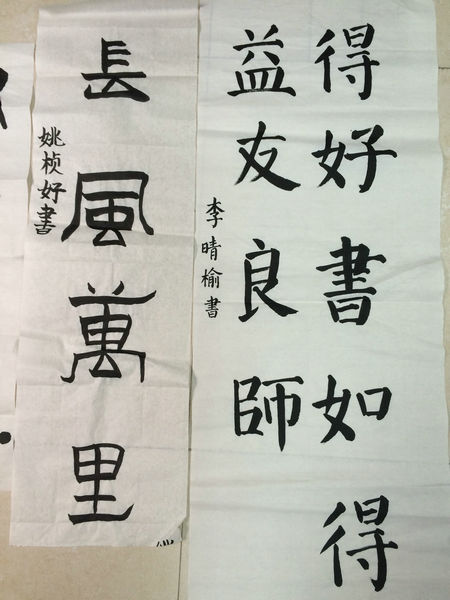 得好書如得
益友良師
李晴榆書
長風萬里
姚楨好書